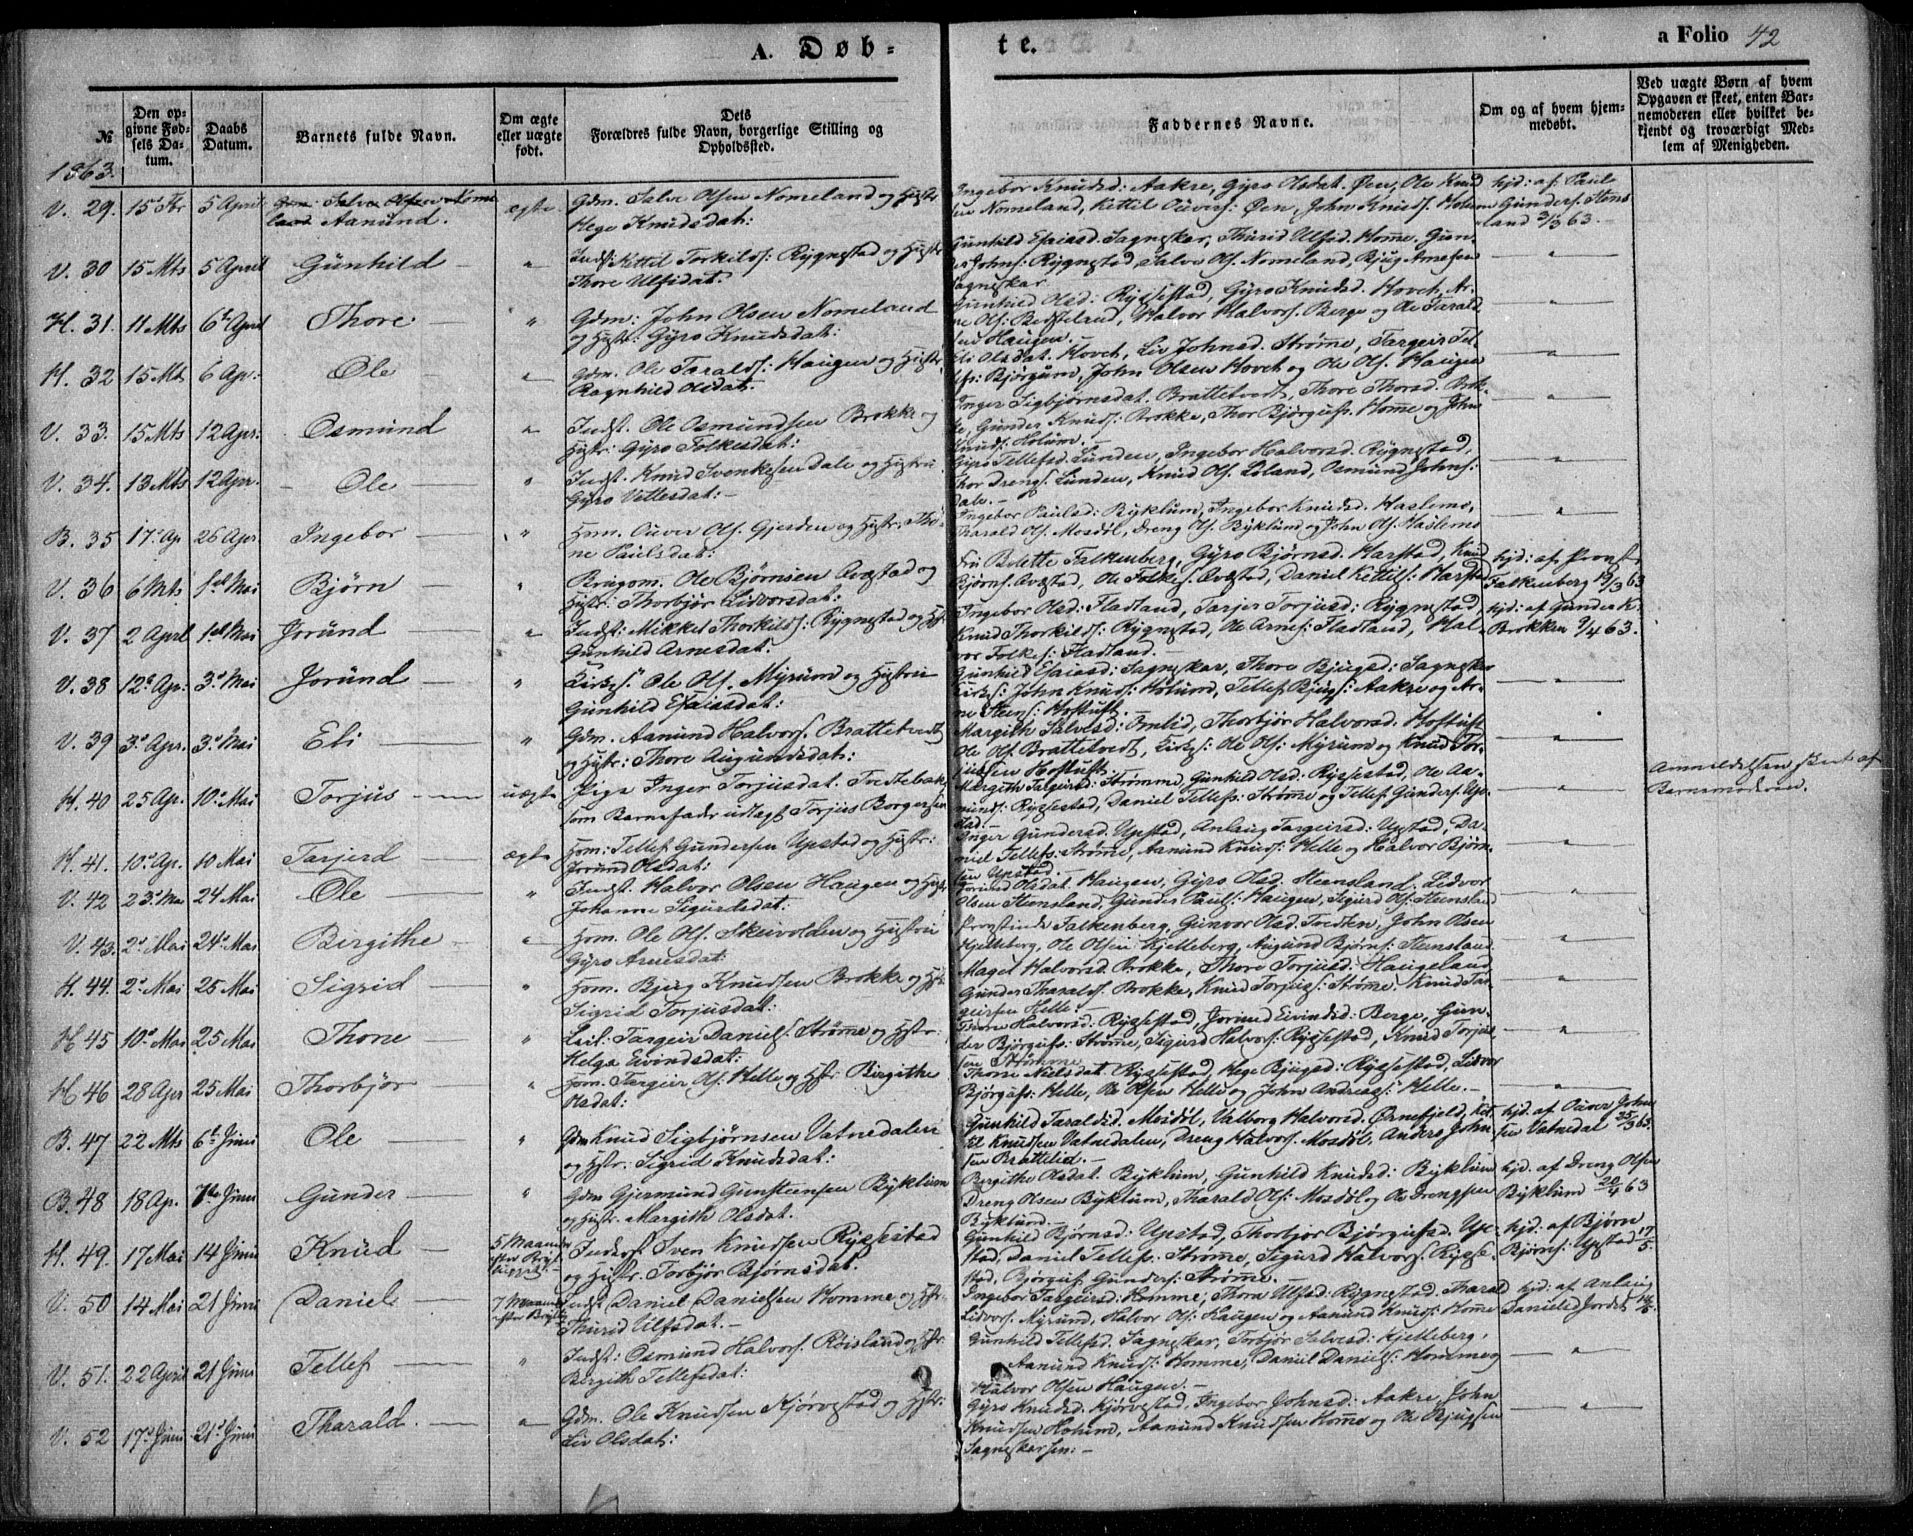 A. Døb= te. a Folio 42
№
Den opgivne Fødsels Datum.
Daabs Datum.
Barnets fulde Navn.
Om ægte eller uægte født.
Dets Forældres fulde Navn, borgerlige Stilling og Opholdssted.
Faddernes Navne.
Om og af hvem hjemmedøbt.
Ved uægte Børn af hvem Opgaven er skeet, enten Barnemoderen eller hvilket bekjendt og troværdigt Medlem af Menigheden.
1863.
V. 29. 5 April Aanund. ægte Gdm. Salve Olsen Nomeland og Hustr:
Hege Knudsdat:
Ingebor Knudsd: Aakre, Gyro Olsdat. Øen, Ole Knud
sen Nomeland, Kittil Øen, John Knuds: Holum
hjd: af Paul
Gunders. Stens
land 3/3 63.
V. 30 15 Mts 5 April Günhild " Indst: Kittel Torkilds: Rygnestad og Hustr
Thore Ulfsdat:
Gunhild Esaiasd. Sagneskar, Thurid Ulfsd. Homme, Gun-
der Johns: Rygnestad, Salve Ols. Nomeland, Bjug Arnesen
Sagneskar
H. 31. 11 Mts 6t April Thore " Gdm: John Olsen Nomeland
og Hustr: Gyro Knudsdat:
Gunhild Olsd: Rysestad, Gyro Knudsd. Hovet, Ar-
ne Ols: Halvor Halvors. Berge og Ole Tarald
sen Haugen.
H. 32 15 Mt 6 Ap: Ole " Gdm. Ole Taralds: Haugen og Hustr.
Ragnhild Olsdat:
Olsdat. Hovet, Liv Johnsd. Strøme, Targeir Tel-
lefs: Bjørgum, John Olsen Hovet og Ole Ols. Haugen
V. 33. 15 Mts 12 Apr: Osmund " Indst. Ole Osmundsen Brokke og
Hustr: Gyro Folkesdat:
Inger Sigbjørnsdat. Brattetvedt, Thore Thorsd. Brok-
ke, Gunder Knuds: Brokke, Thor Bjørgufs. Homme og John
Knuds: Holum.
V. 34. 13 Mts 12 Apr. Ole " Indst. Knud Svenkesen Dale og Hustru
Gyro Vettesdat:
Gyro Tellefsd. Lunden, Ingebor Halvorsd. Rygnestad,
Thor Drengs. Lunden, Knud Ols. Løland, Osmund Johns:
Dale.
B. 35 17 Ap 26 Apr. Ingebor " Hom. Ouver Ols. Gjerden og Hustr: Tho-
ne Paulsdat:
Ingebor Paulsd: Byklum, Ingebor Knudsd. Haslemo,
Tharald Ols. Mosdøl, Dreng Ols. Byklum og John Ols. Haslemo
V. 36 6 Mts 1st Mai Bjørn " Brugom. Ole Bjørnsen og
Hustr: Thorbjør Lidvorsdat:
Fru Bolette Falkenberg, Gyro Bjørnsd. Harstad, Knud
Bjørns. Ole Folkes. Daniel Kettils: Harstad
hjd: af Provst
Falkenberg 19/3 63
V. 37 2 April 1st Mai Joründ " Indst: Mikkel Thorkilds: Rygnestad og
Gunhild Arnesdat.
Ingebor Olsd: Flatland, Torjusd: Rygnestad,
Knud Thorkilds: Rygnestad, Ole Arnes: Flatland, Hal-
vor Folkes: Flatland.
hjd: af Gunder K.
Brokken 9/4 63.
V. 38 12 Ap: 3 Mai Joründ " Ole Ols. Myrum og Hustru
Gunhild Esaiasdat:
Gunhild Esaiasd: Sagneskar, Thore Bjugsd: Sagneskar
John Knuds: Holum, Tellef Bjugs: Aakre og Ar-
ne Steens: Hoftuft.
V. 39 3 Apr. 3 Mai Eli " Gdm. Aanund Halvors. Brattetvedt
og Hustr: Thore Augundsdat:
Margith Salvesd: Omlid, Thorbjør Halvorsd. Hoftuft,
Ole Ols. Brattetvedt, Ole Ols: Myrum og Knud Tor-
jussen Hoftuft.
H. 40 25 Ap. 10 Mai Torjus uægte Pige Inger Torjusdat.
som Barnefader udlagt Torjus Borgersen
Margith Talgeirsd: Strømme, Gunhild Olsd. Rysestad, Ole Aa-
munds: Rysestad, Daniel Tellefs: Strøme og Tellef Gunders. Up-
stad.
Anmeldelsen skeet af
Barnemoderen.
H. 41. 10 Ap. 10 Mai Tarjerd ægte Hom: Tellef Gundersen Upstad og Hustr:
Jorund Olsdat:
Inger Gundersd. Upstad, Anlaug Targeirsd: Upstad, Da-
niel Tellefs: Strøme, Aanund Knuds: Helle og Halvor Bjørn-
sen Upstad.
V. 42 23 Ma 24 Mai Ole " Indst. Halvor Olsen Haugen og Hustr
Johanne Sigurdsdat:
Jorund Olsdat. Haugen, Gyro Olsd. Steensland, Lidvor
Olsen Steensland, Gunder Pauls: Haugen, Sigurd Ols: Steensland
V. 43. 2 Mai 24 Mai Birgithe " Hom. Ole Ols. Skeivolden og Hustru
Gyro Arnesdat:
Provstinde Falkenberg, Gunvor Olsd. Tvedten, John Olsen
Kjelleberg, Ole Olsen Kjelleberg, Augund Bjørns: Steensland.
H. 44. 2 Mai 25 Mai Sigrid " Hom. Bjug Knudsen Brokke og
Sigrid Torjusdat:
Magel Halvorsd. Brokke, Thore Torjusd: Haugeland
Gunder Tharalds. Brokke, Knud Torjus: Strøme, Knud Tar-
geirsen Helle.
H 45 10 Mai 25 Mai Thone " Targeir Daniels. Strømme og Hstr:
Helga Eivindsdat:
Thone Halvorsd: Rysestad, Jorund Eivindsd: Berge, Gun-
der Bjørgufs: Strømme, Sigurd Halvors: Rysestad, Knud Torjus
sen Strømme
H 46 28 Apr 25 Mai Thorbjør " Hom. Targeir Ols. Helle og Hstr: Birgithe
Olsdat:
Thone Nielsdat. Rysestad, Hege Bjugsd: Rysestad, Lidvor
Bjørgufs: Helle, Ole Olsen Helle og John Andreas: Helle.
B. 47 22 Mts 6t Juni Ole " Gdm Knud Sigbjørnsen Vatnedalen
og Hstr: Sigrid Knudsdat:
Gunhild Taraldsd. Mosdøl, Valborg Halvorsd. Ørnefjeld, Ket-
til Knudsen Vatnedalen, Dreng Halvors. Mosdøl, Anders John-
sen Brattelid.
hjd. af Ouver John
sen Vatnedal 25/3 63.
B. 48 18 Ap. 7de Juni Gunder " Gdm Gjermund Gunsteensen Byklum
og Hustr. Margith Olsdat.
Birgithe Olsdat. Byklum, Gunhild Knudsd: Byklum
Dreng Olsen Byklum, Tharald Ols: Mosdøl og Ole Drengsen
Byklum.
hjd. af Dreng Olsen
Byklum 20/4 63
H. 49. 17 Mai 14 Juni Knud 5 Maaneder
efter Bryl
Indst. Sven Knudsen Rysestad
og Hustr. Torbjør Bjørnsdat.
Gunhild Bjørnsd: Upstad, Thorbjør Bjørgufsd. Up-
stad, Daniel Tellefs. Strømme, Sigurd Halvors. Ryse-
stad, Bjørguf Gunders: Strømme.
hjd. af Bjørn
Bjørns: Upstad 17/5.
V. 50 14 Mai 21 Juni Daniel 7 Maaneder
efter Bryllup
Indst Daniel Danielsen Homme og Hstr.
Thurid Ulfsdat.
Ingebor Targeirsd: Homme, Thora Ulfsd. Rygnestad, Tharald
Lidvors. Myrund, Halvor Ols: Haugen og Aanund Knuds: Homme
hjd: af Anlaug
Danielsd Jordet
V. 51. 22 April 21 Juni Tellef " Indst: Osmund Halvors. Røisland og Hstr.
Bergith Tellefsdat:
Gunhild Tellefsd. Sagneskar, Torbjør Salvesd: Kjelleberg,
Aanund Knuds: Homme, Daniel Daniels: Homme og
Halvor Olsen Haugen.
V. 52 17 Juni 21 Juni Tharald " Gdm. Ole Knudsen Kjørvestad og Hstr:
Liv Olsdat:
Gyro Knudsd. Kjørvestad, Ingebor Johnsd: Aakre, John
Knudsen Holum, Aanund Knudsen Homme og Ole Bjugsen
Sagneskar